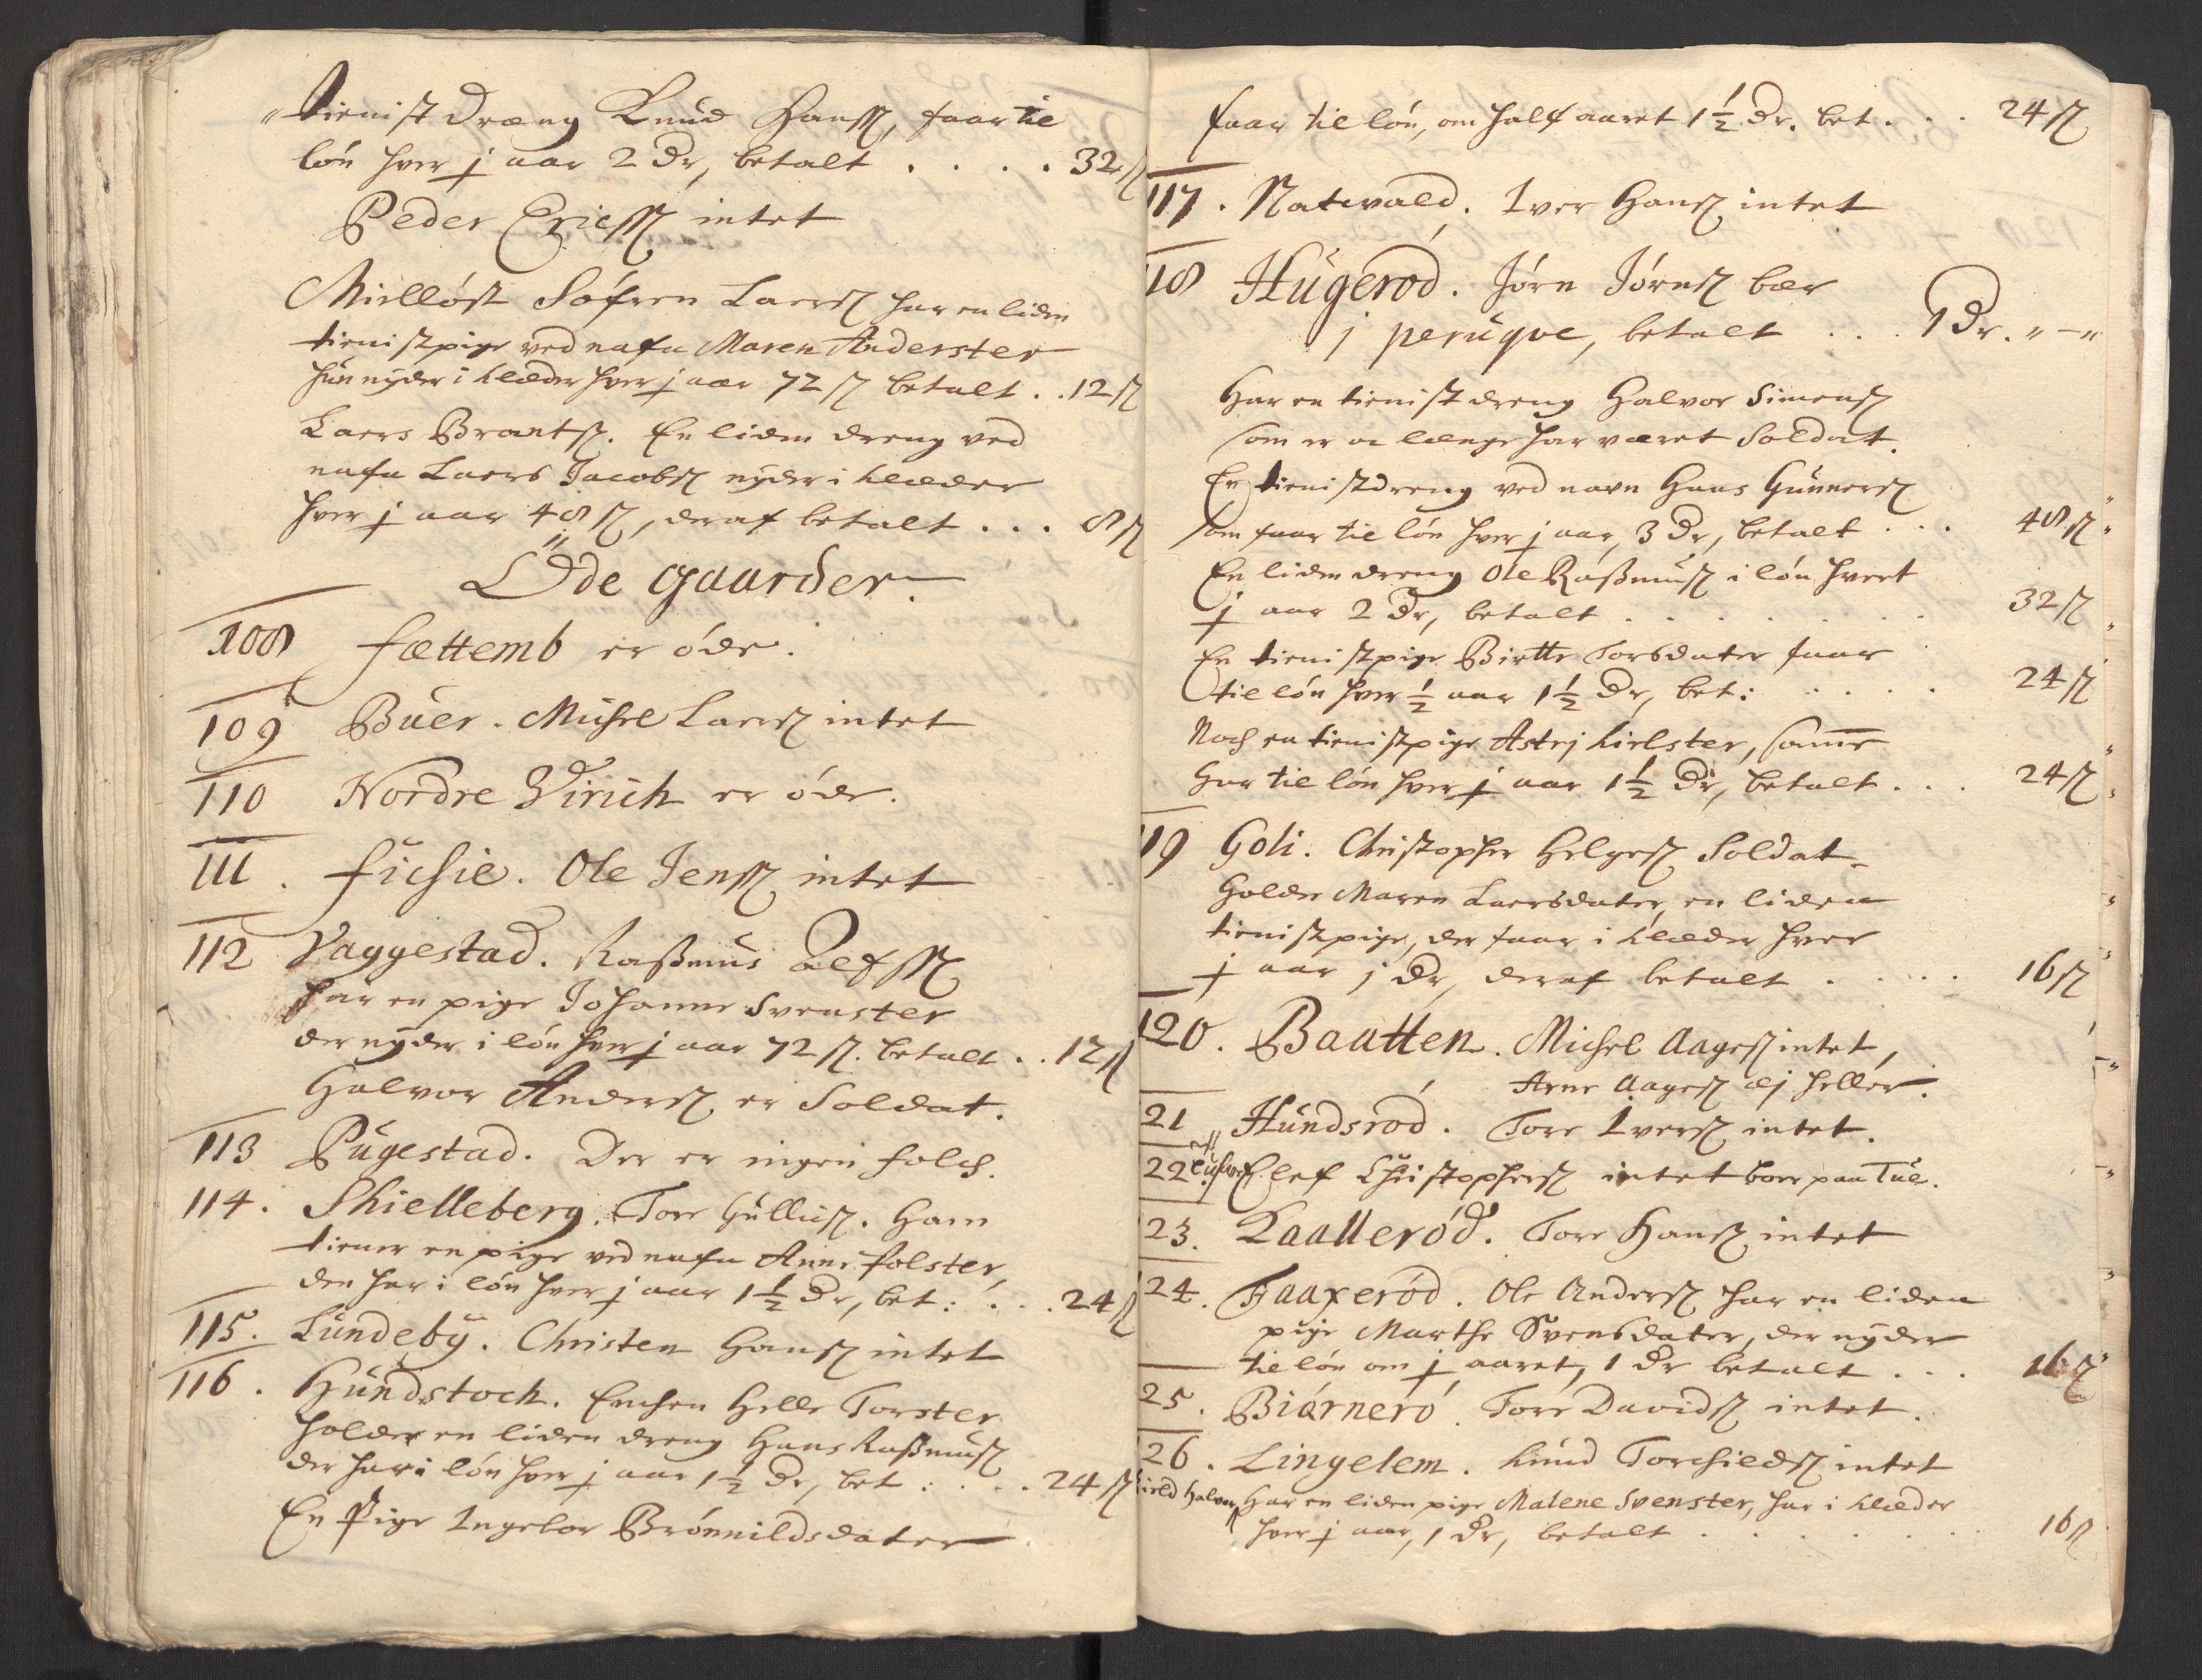 tienist Dreng Knud Hanss, faar til
lön hver ɉ aar 2 Dr, betalt . . . . 32 ß
Peder Ericss intet
Mielløst Søfren Laers har en liden
tienistpige ved nafn Maren Anderster
hun nyder i klæder hver ɉ aar 72 ß betalt . . 12 ß
Laers Brants. En liden dreng ved
nafn Laers Jacobs nyder i klæder
hver ɉ aar 48 ß, deraf betalt . . . 8 ß
Öde gaarder.
108 fættemb er öde.
109 Büer. Michel Laers intet
110 Nordre Virich er öde.
111. ficsie. Ole Jenss intet
112 Vaggestad. Rasmus
har en pige Johanne Svenster
der nyder i lön hver ɉ aar 72 ß. betalt . . 12 ß
Halvor Anders er Soldat.
113 Pügestad. Der er ingen folch.
114. Skielleberg. Tore Gulliks. Ham
tiener en pige ved nafn Anne Polster,
den har i lön hver ɉ aar 1½ Dr, bet: . . . 24 ß
115. Lündebÿ. Christen Hans intet
116. Hündstoch. Enchen Helle Torster
holder en liden dreng Hans Rasmus
der har i lön hver ɉ aar 1½ Dr, bet: . . . 24 ß
En Pige Ingebor Brönnildsdater
faar til lön, om half aaret 1½ Dr. bet. . . 24 ß
117. Natvald. Iver Hans intet
18 Hügeröd. Jörn Jörns bær
j perüqve, betalt . . . 1 Dr. " - "
Har en tienist dreng Halvor Simens
som er oc længe har været Soldat.
En tienistdreng ved navn Hans Gunners
som faar til lön hver ɉ aar, 3 Dr, betalt . . . 48 ß
En liden dreng Ole Rasmus i lön hvert
ɉ aar 2 Dr, betalt . . . . . . . 32 ß
En tienistpige Birtte Torsdater faar
til lön hver ½ aar 1½ Dr, bet: . . . . . 24 ß
Noch en tienistpige Astrj Kielster, samme
har til lön hver ɉ aar 1½ Dr, betalt . . . 24 ß
19 Goli. Christopher Helges Soldat
Holder Maren Laersdater, en liden
tienistpige, der faar i klæder hver
ɉ aar j Dr, deraf betalt . . . . 16 ß
120. Baatten. Michel Aages intet,
Arne Aages ej heller.
21 Hündsröd. Tore Ivers intet.
22 Elef Christophers intet boer paa Tüe.
23. Kaalleröd. Tore Hans intet
24. Faaxeröd. Ole Anders har en liden
pige Marthe Svensdater, der nyder
til lön om ɉ aaret, 1 Dr betalt . . . 16 ß
25. Biörnerö. Tore Davids intet.
26. Lingelem. Knud Torchields intet
Kield Halvors Har en liden pige Malene Svenster, har i klæder
hver ɉ aar, 1 Dr, betalt . . . . . . . 16 ß